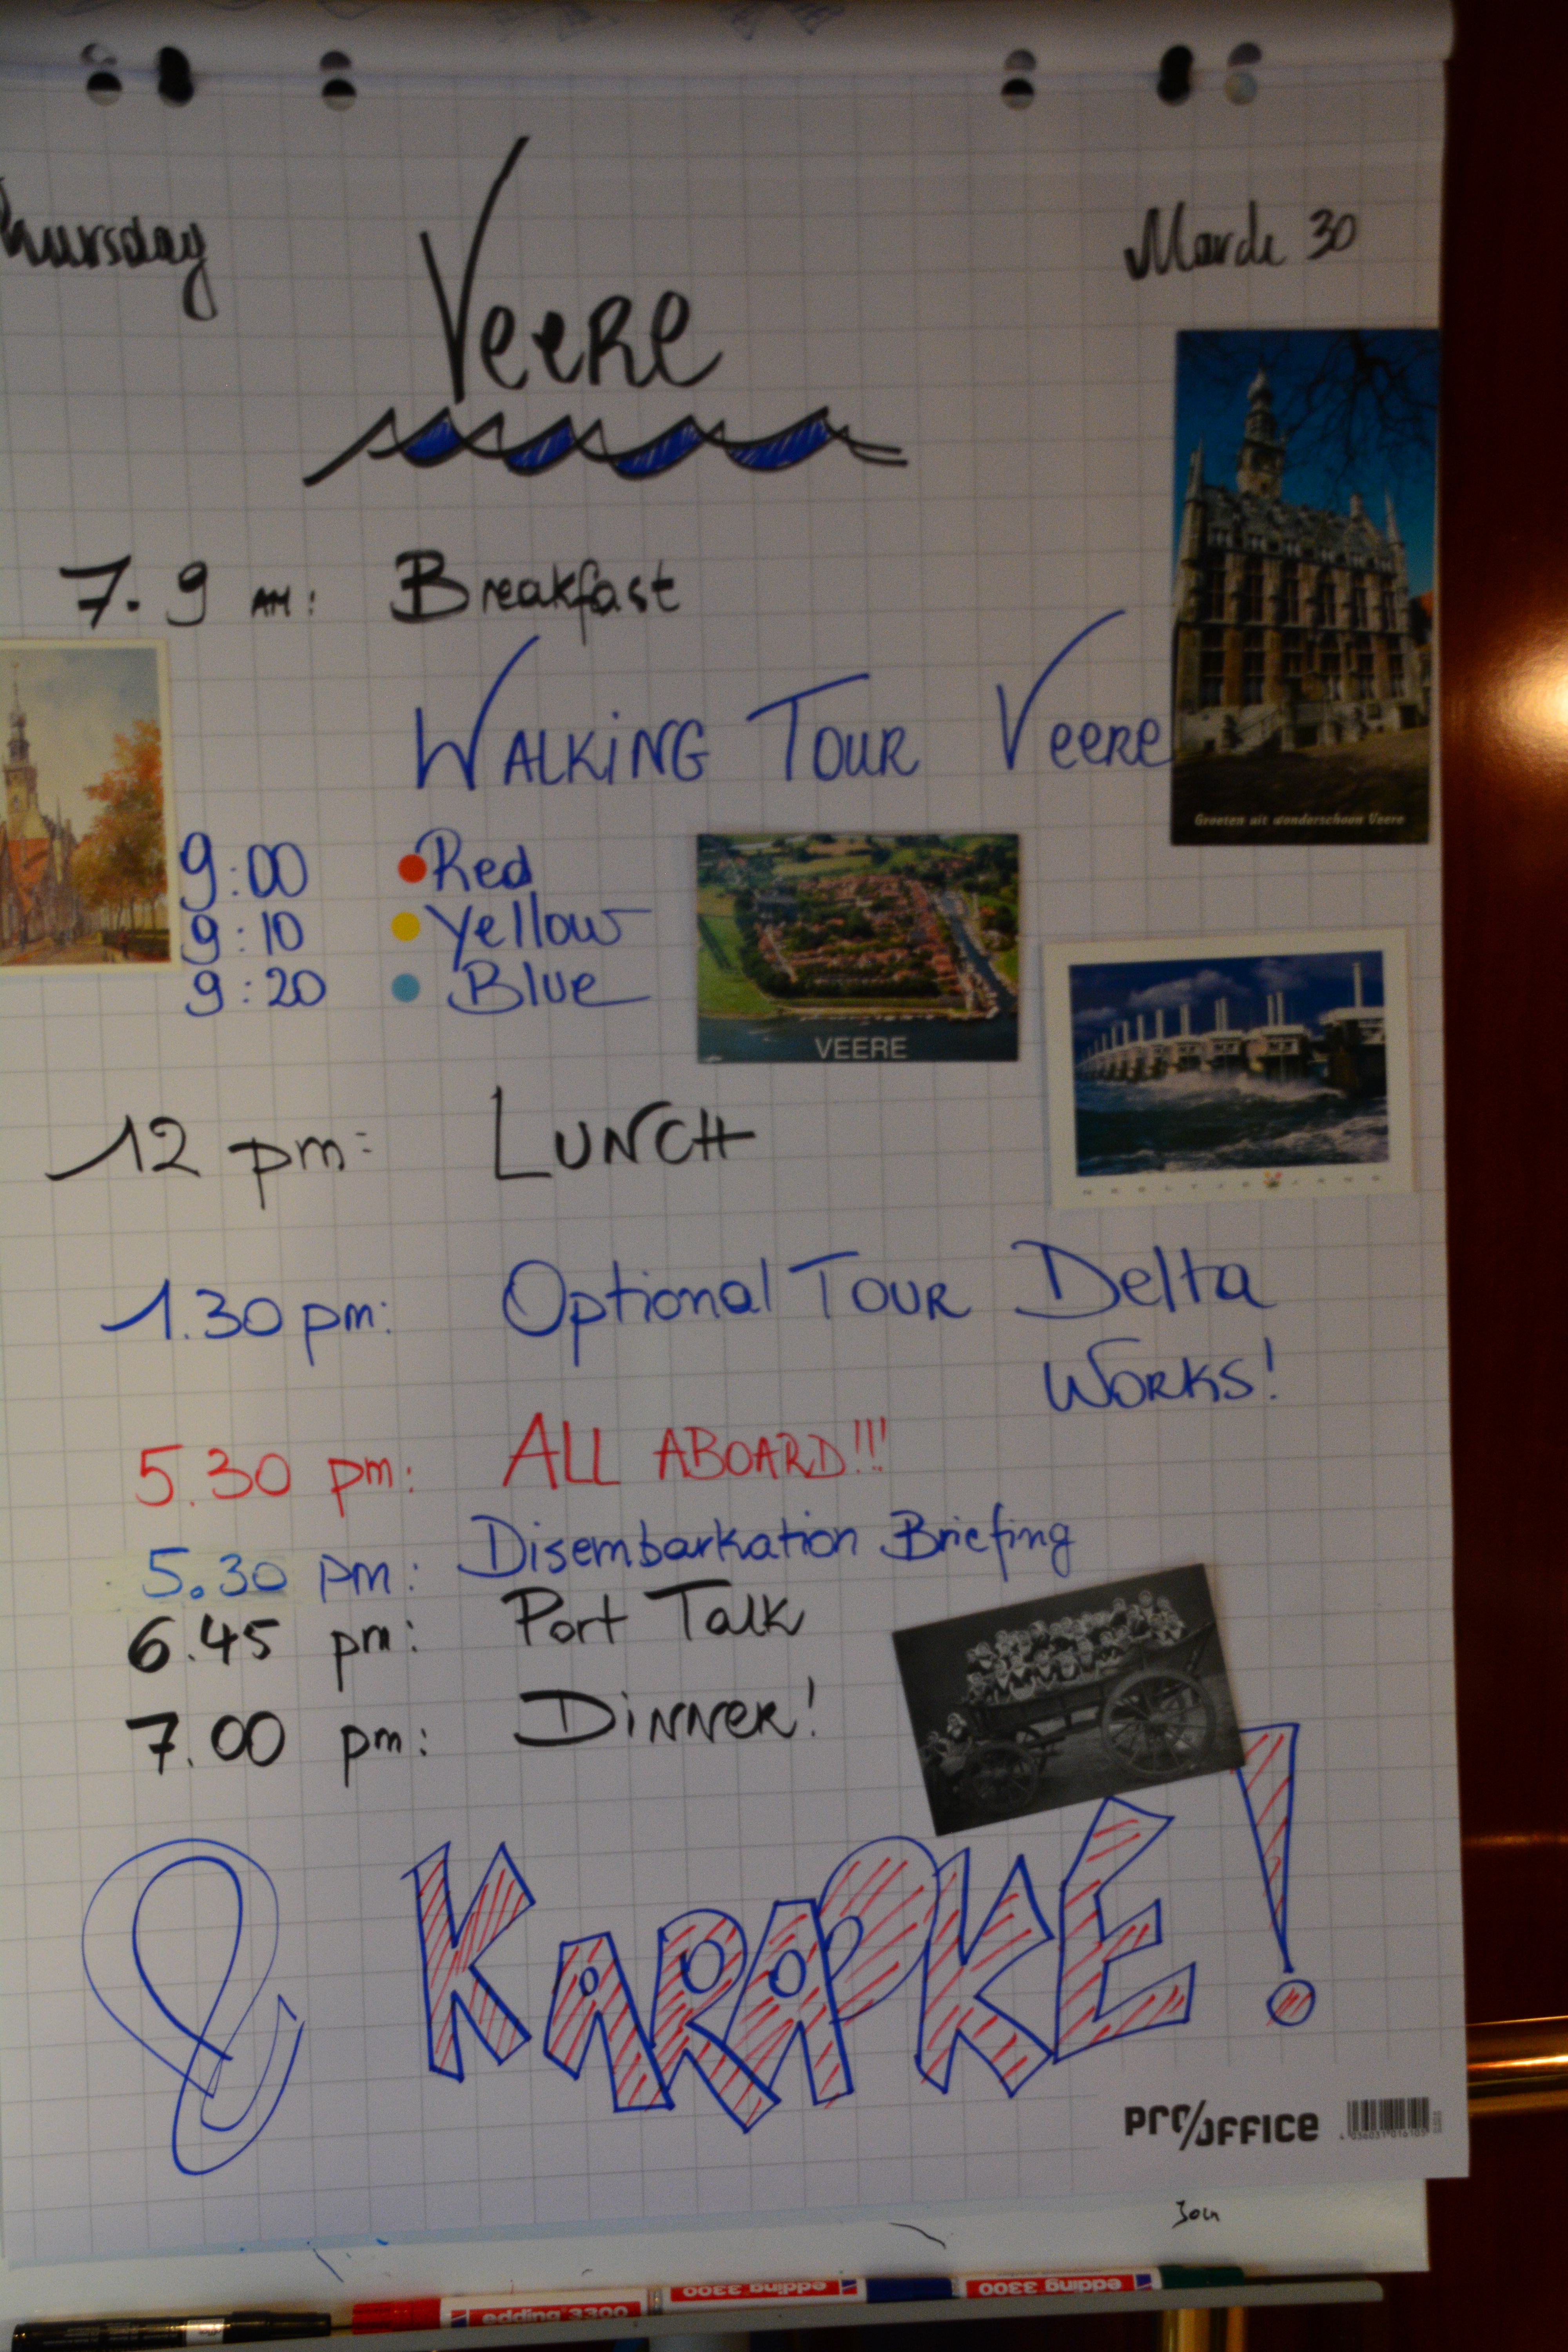 Thursday March 30
Veere
7.9 AM: Breakfast
WALKING TOUR Veere
Groeten uit wonderschoon Veere
9:00 Red
9:10 Yellow
9:20 Blue
VEERE
12 pm: LUNCH
NEELTJE JANS
1.30 pm: Optional TOUR Delta
WORKS!
5.30 pm: ALL ABOARD!!!
5.30 pm: Disembarkation Briefing
6.45 pm: Port Talk
7.00 pm: DINNER!
& KARAOKE!
PRO/OFFICE
4 036031 016105
edding 3300
edding 3300
edding 3300